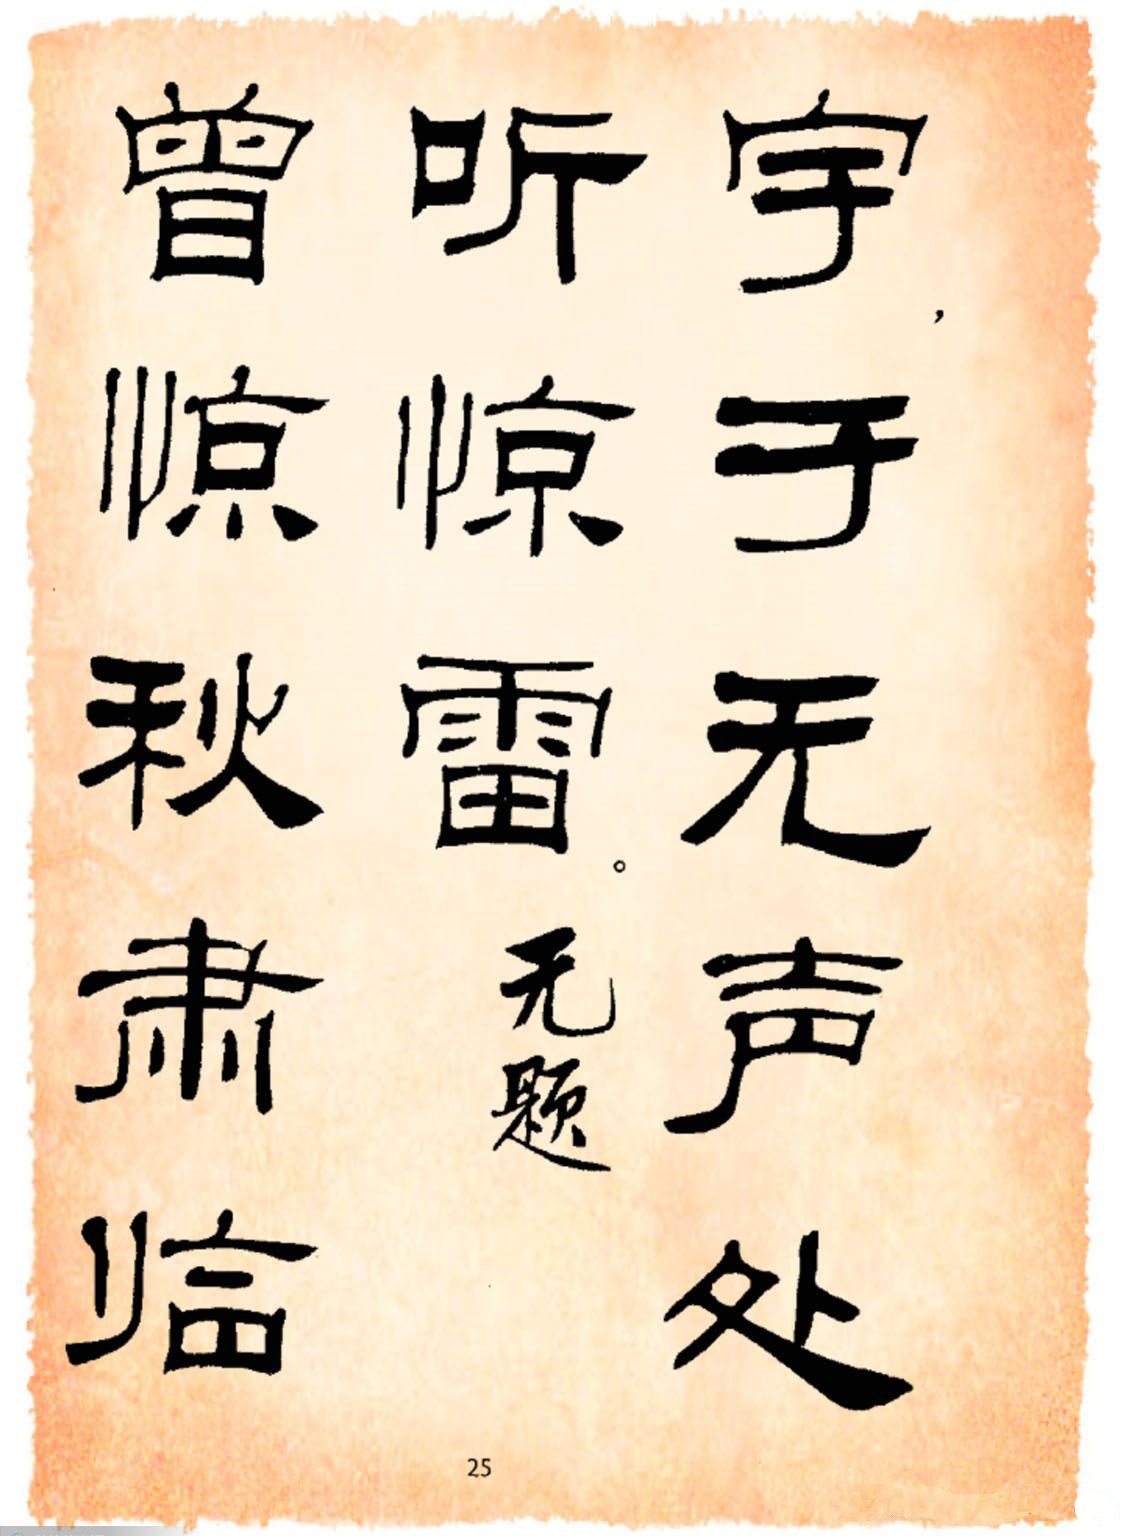 宇，于无声处
听惊雷。
无题
曾惊秋肃临
25